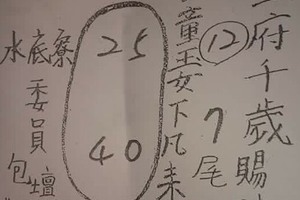 府千歲賜
12
7尾
童玉女下凡来
25
40
水底寮
委員
包壇